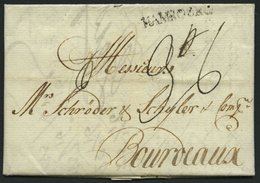 HAMBOURG
Messieurs
36
Mrs Schröder & Schyler & Comp.
Bourdeaux